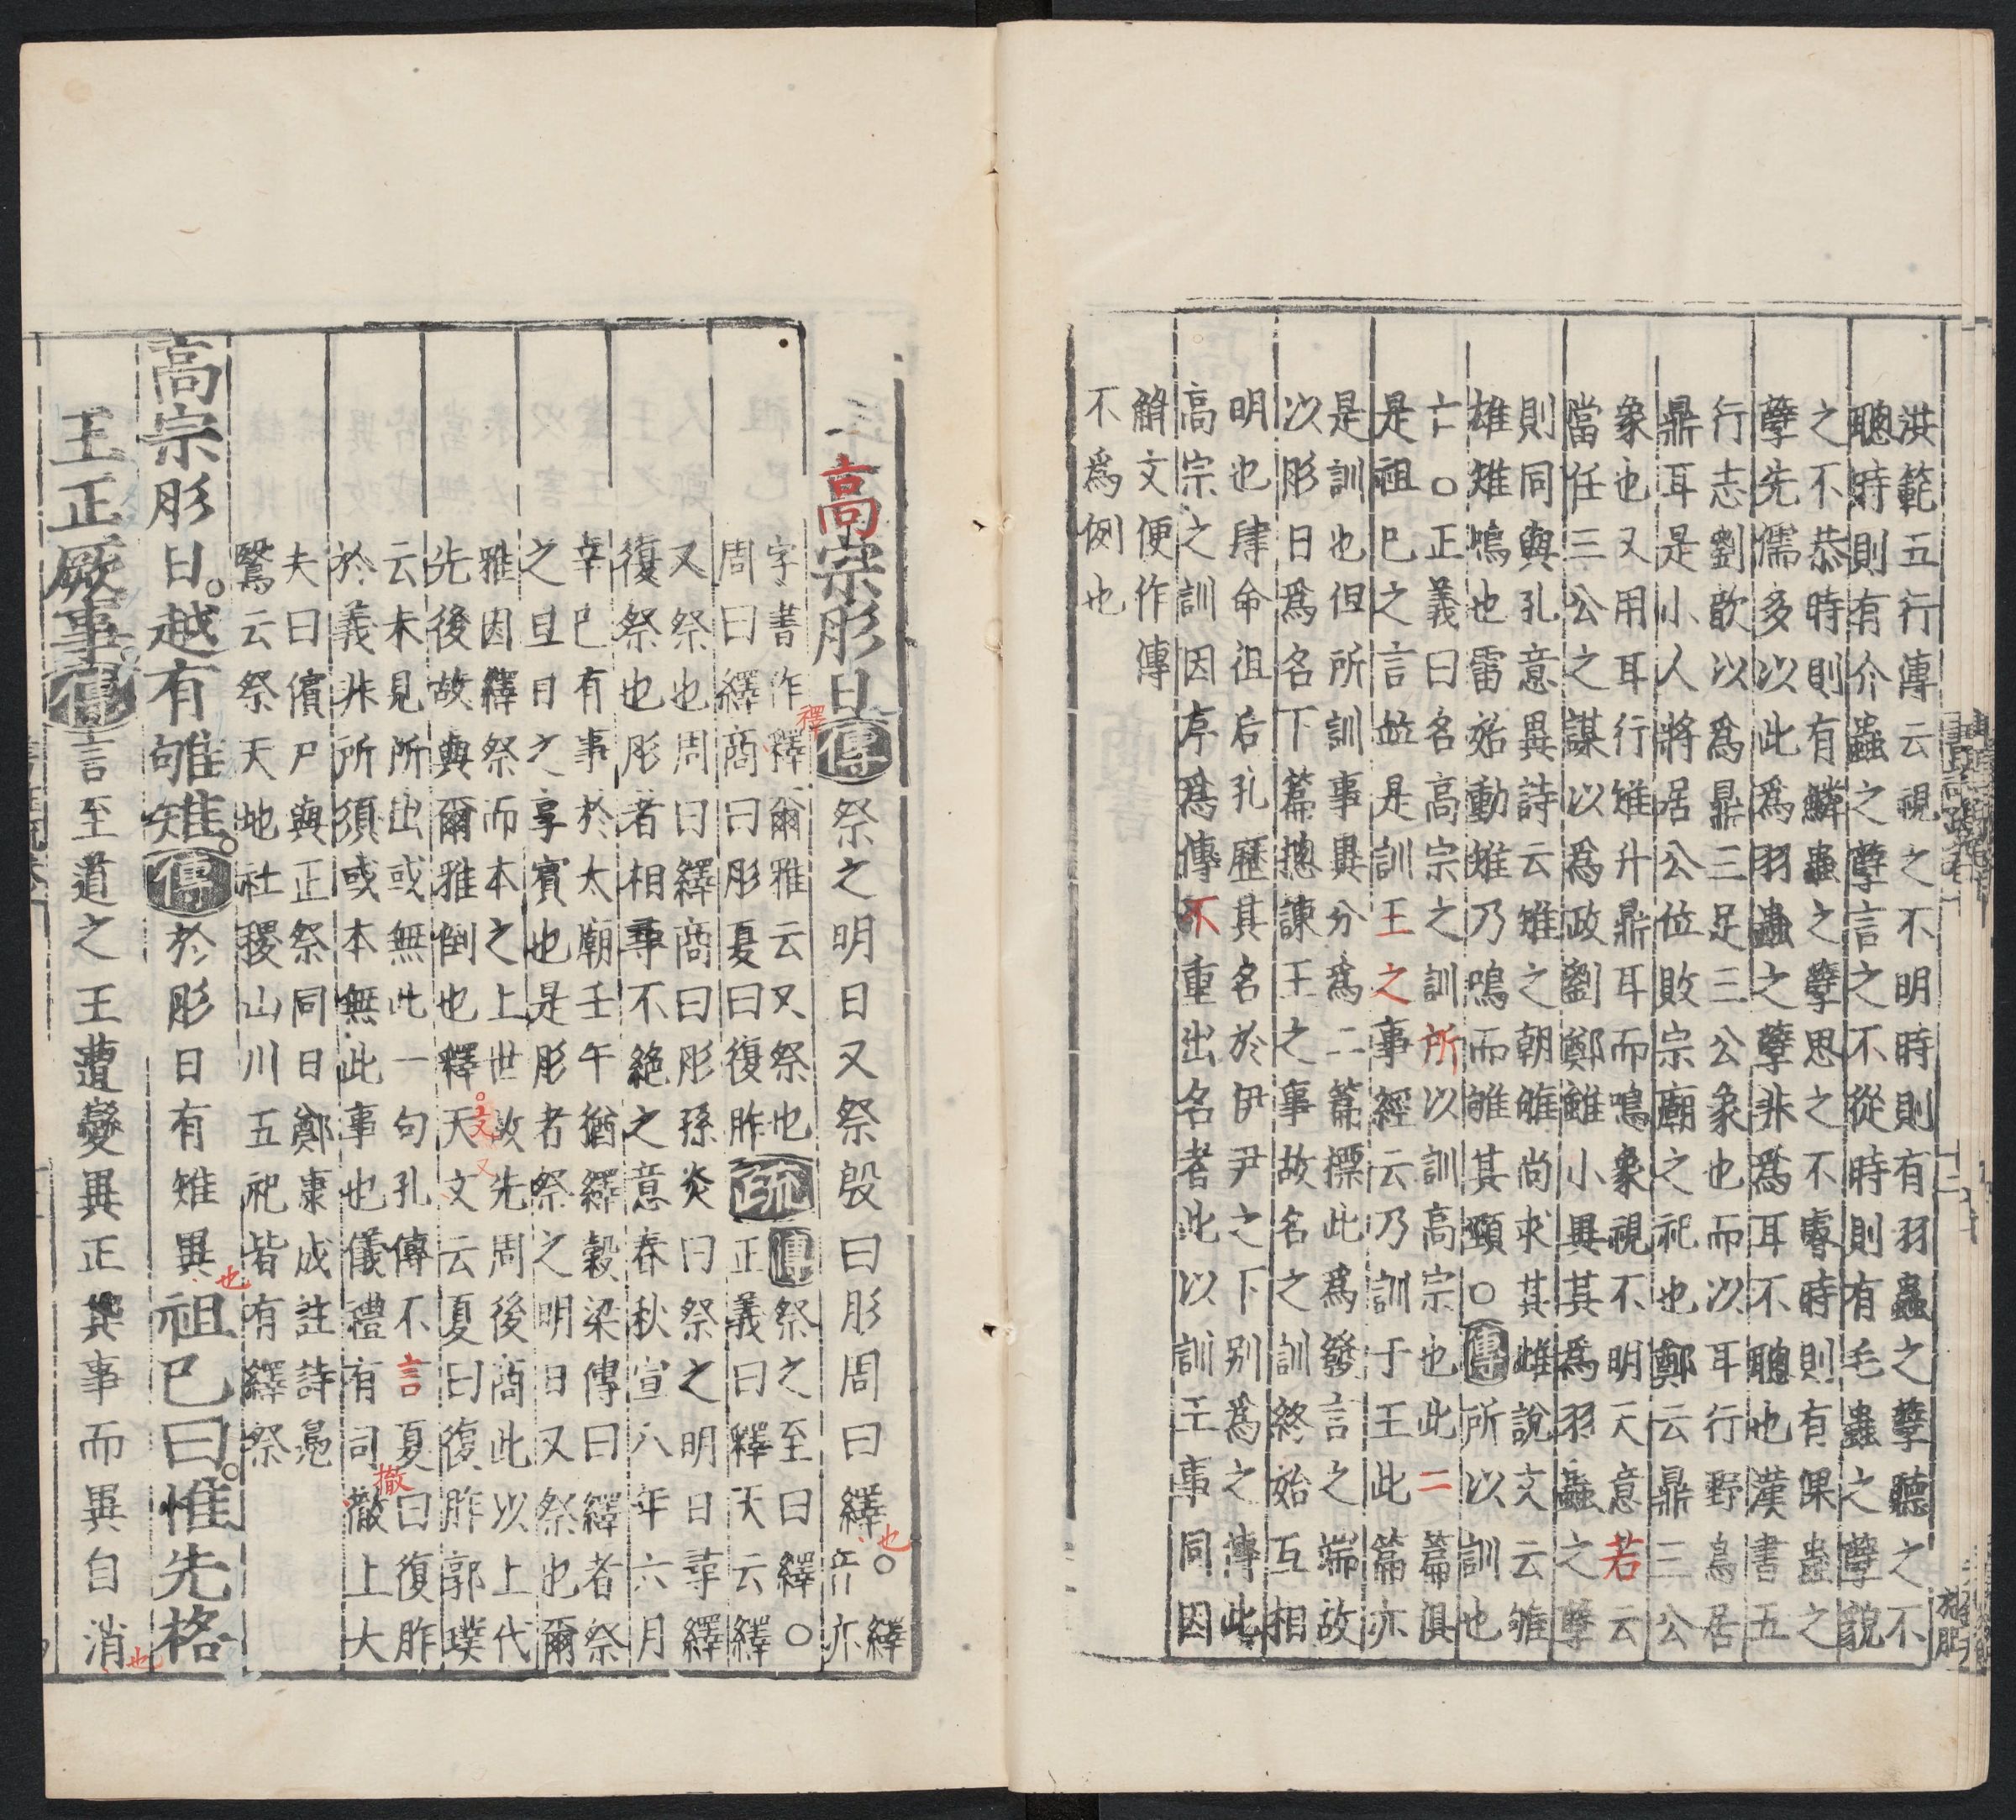 洪範五行傳云視之不明時則有羽蟲之孽聽之不
聰時則有介蟲之孽言之不從時則有毛蟲之孽貌
之不恭時則有鱗蟲之孽思之不睿時則有倮蟲之
孽先儒多以此爲羽蟲之孽非爲耳不聰也漢書五
行志劉歆以爲鼎三足三公象也而以耳行野鳥居
鼎耳是小人將居公位敗宗廟之祀也鄭云鼎三公
象也又用耳行雉升鼎耳而鳴象視不明天意若云
當任三公之謀以爲政劉鄭雖小異其爲羽蟲之孽
則同與孔意異詩云雉之朝雊尚求其雌說文云雊
雄雉鳴也雷始動雉乃鳴而雊其頸○傳所以訓也
亡○正義曰名高宗之訓所以訓高宗也此二篇俱
是祖巳之言並是訓王之事經云乃訓于王此篇亦
是訓也但所訓事異分爲二篇摽此爲發言之端故
以肜日爲名下篇摠諫王之事故名之訓終始互相
明也肆命徂后孔歷其名於伊尹之下别爲之傳此
高宗之訓因序爲傳不重出名者此以訓王事同因
觧文便作傳
不爲例也
高宗肜日傳祭之明日又祭殷曰肜周曰繹也○繹音亦
字書作釋釋爾雅云又祭也
周曰繹商曰肜夏曰復胙疏傳祭之至曰繹○
正義曰釋天云繹
又祭也周曰繹商曰肜孫炎曰祭之明日尋繹
復祭也肜者相尋不絶之意春秋宣八年六月
辛巳有事於太廟壬午猶繹穀梁傳曰繹者祭
之旦日之享賓也是肜者祭之明日又祭也爾
雅因繹祭而本之上世故先周後商此以上代
先後故與爾雅倒也釋天又又文云夏曰復胙郭璞
云未見所出或無此一句孔傳不言夏曰復胙
於義非所須或本無此事也儀禮有司徹撤上大
夫曰儐尸與正祭同日鄭康成註詩鳧
鷖云祭天地社稷山川五祀皆有繹祭
高宗肜日。越有雊雉。傳於肜日有雉異也祖巳曰。惟先格
王正厥事。傳言至道之王遭變異正其事而異自消也